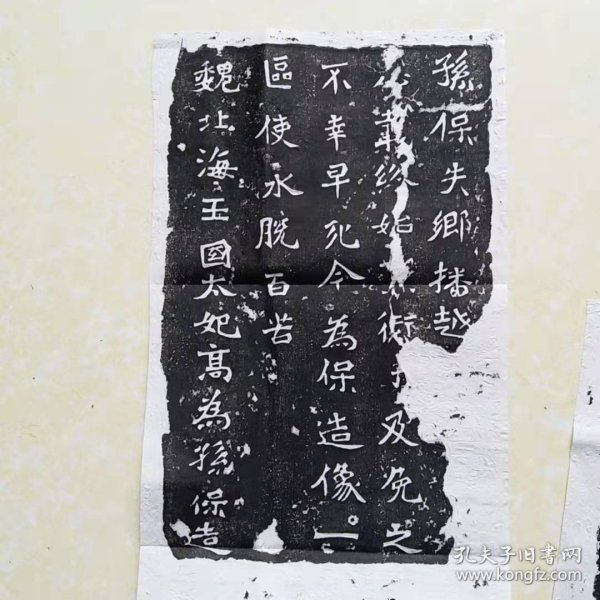 孫保失鄉播越
終始銜及免之
不幸早死今為保造像一
區使永脫百苦
魏北海王國太妃高為孫保造
孔夫子旧书网
www.kongfz.com